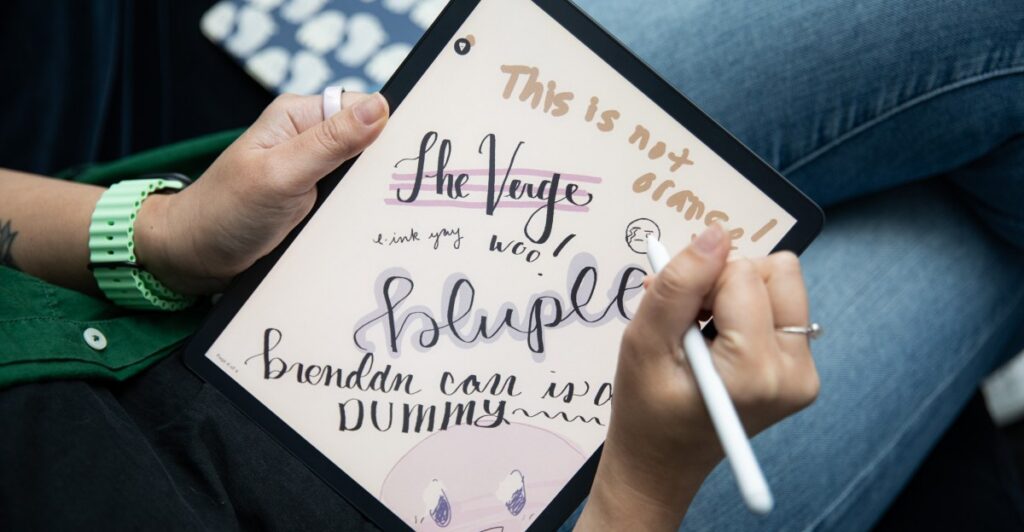 This is not
orange!
The Verge
e-ink yay woo!
bluple
brendan carr is a
DUMMY